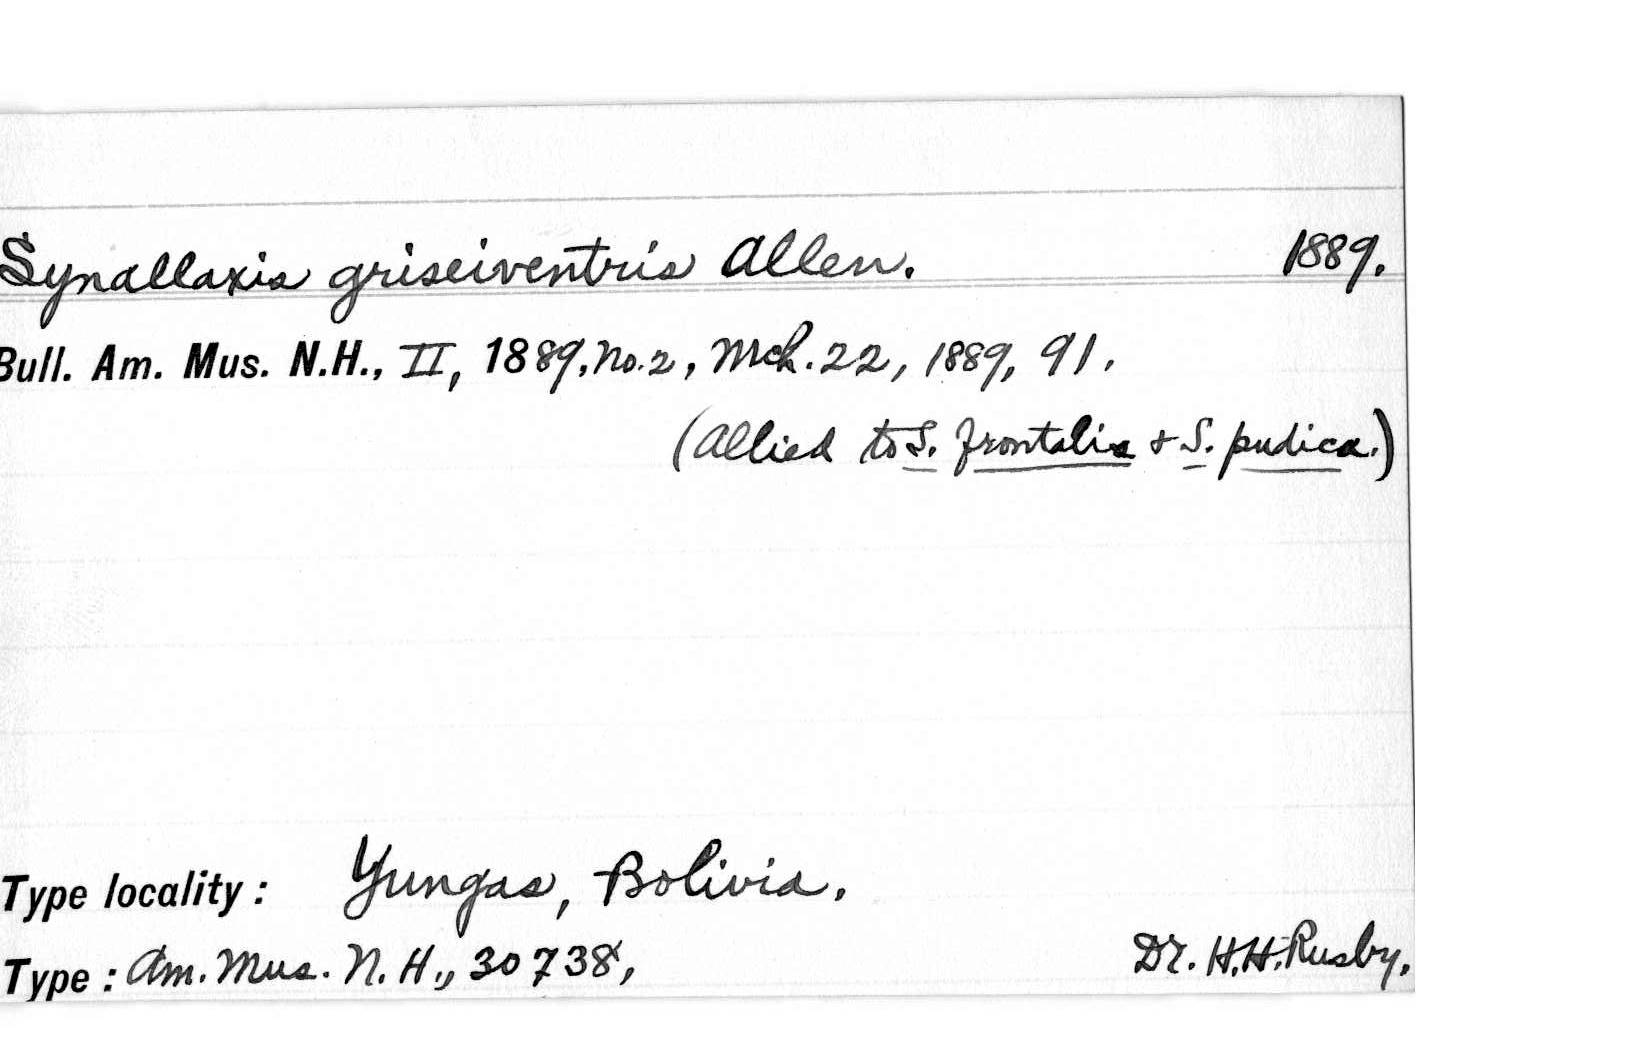 Synallaxis griseiventris Allen. 1889.
Bull. Am. Mus. N.H., II, 1889, No. 2, Mch. 22, 1889, 91.
(Allied to S. frontalis & S. pudica.)
Type locality: Yungas, Bolivia.
Type: Am. Mus. N. H., 30738, Dr. H.H. Rusby.